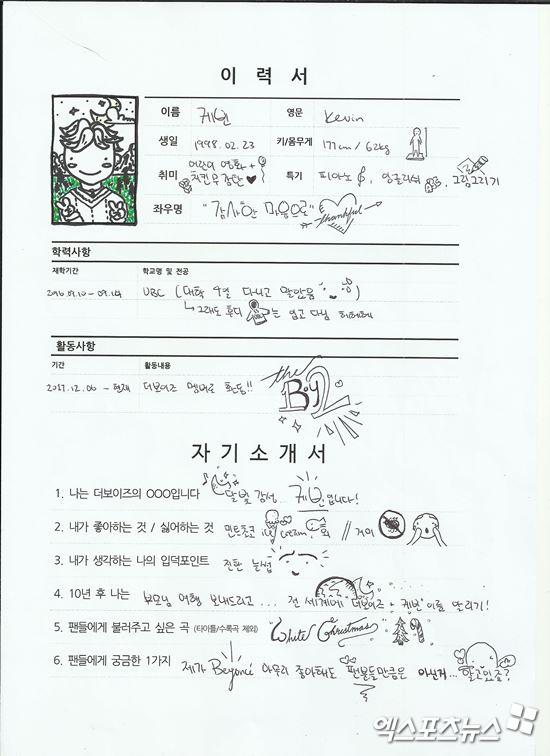 이 력 서
이름 케빈 영문 Kevin
생일 1998.02.23 키/몸무게 177cm / 62kg
취미 영화 + 치킨무 특기 피아노, 잉글리쉬, 그림그리기
좌우명 "감사한 마음으로" Thankful
학력사항
재학기간 학교명 및 전공
UBC (대학 4일 다니고 말았음
↳ 그래도 후디 는 입고 다님 헤헤헤
활동사항
기간 활동내용
2017.12.06 - 현재 더보이즈 멤버로 활동!! the Boyz
자 기 소 개 서
1. 나는 더보이즈의 OOO입니다 달빛 감성... 케빈입니다!
2. 내가 좋아하는 것 / 싫어하는 것 민트초코 ice cream, 회 // 거미
3. 내가 생각하는 나의 입덕포인트 진한 눈썹
4. 10년 후 나는 부모님 여행 보내드리고 ... 전 세계에 더보이즈 + 케빈 이름 날리기!
5. 팬들에게 불러주고 싶은 곡 (타이틀/수록곡 제외) White Christmas
6. 팬들에게 궁금한 1가지 제가 Beyoncé 아무리 좋아해도 팬분들만큼은 아닌거... 알고있죠?
엑스포츠뉴스